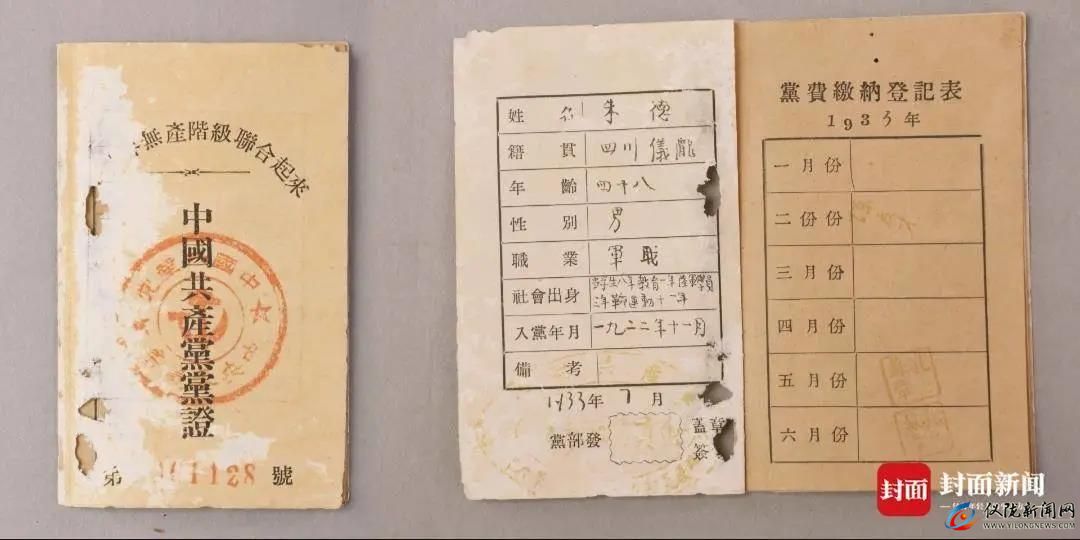 無產階級聯合起來
中國共產黨黨證
第 號
姓名 朱德
籍貫 四川儀隴
年齡 四十八
性別 男
職業 軍職
社會出身 當學生八年教育一年陸軍學員
二年革命運動十一年
入黨年月 一九二二年十一月
備考
1933年7月
黨部發
蓋章
簽
黨費繳納登記表
1933年
一月份
二份份
三月份
四月份
五月份
六月份
封面 封面新闻
仪陇新闻网
WWW.YILONGNEWS.COM